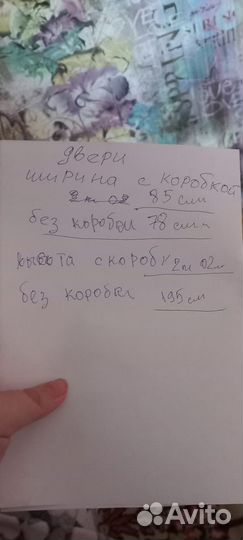 двери
ширина с коробкой
85 см
без коробки 78 см
высота с коробк 2m 02м
без коробки 195 см
Avito